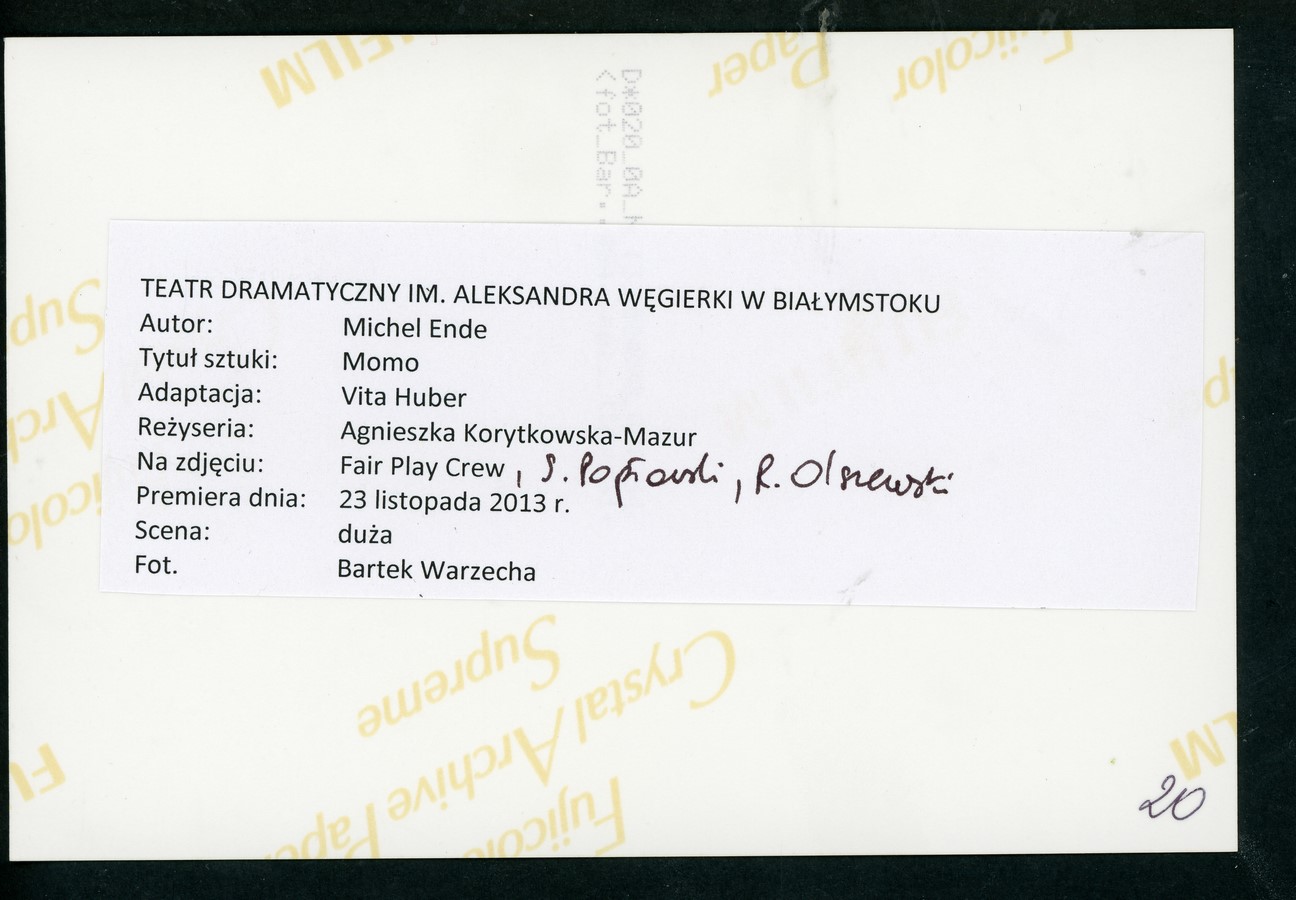 FILM
Paper
Fujicolor
D*020_0A_
<fot_Bar..
TEATR DRAMATYCZNY IM. ALEKSANDRA WĘGIERKI W BIAŁYMSTOKU
Autor: Michel Ende
Tytuł sztuki: Momo
Adaptacja: Vita Huber
Reżyseria: Agnieszka Korytkowska-Mazur
Na zdjęciu: Fair Play Crew , S. , R. Olszewski
Premiera dnia: 23 listopada 2013 r.
Scena: duża
Fot. Bartek Warzecha
Crystal Archive Paper
Supreme
Fujicolo
20